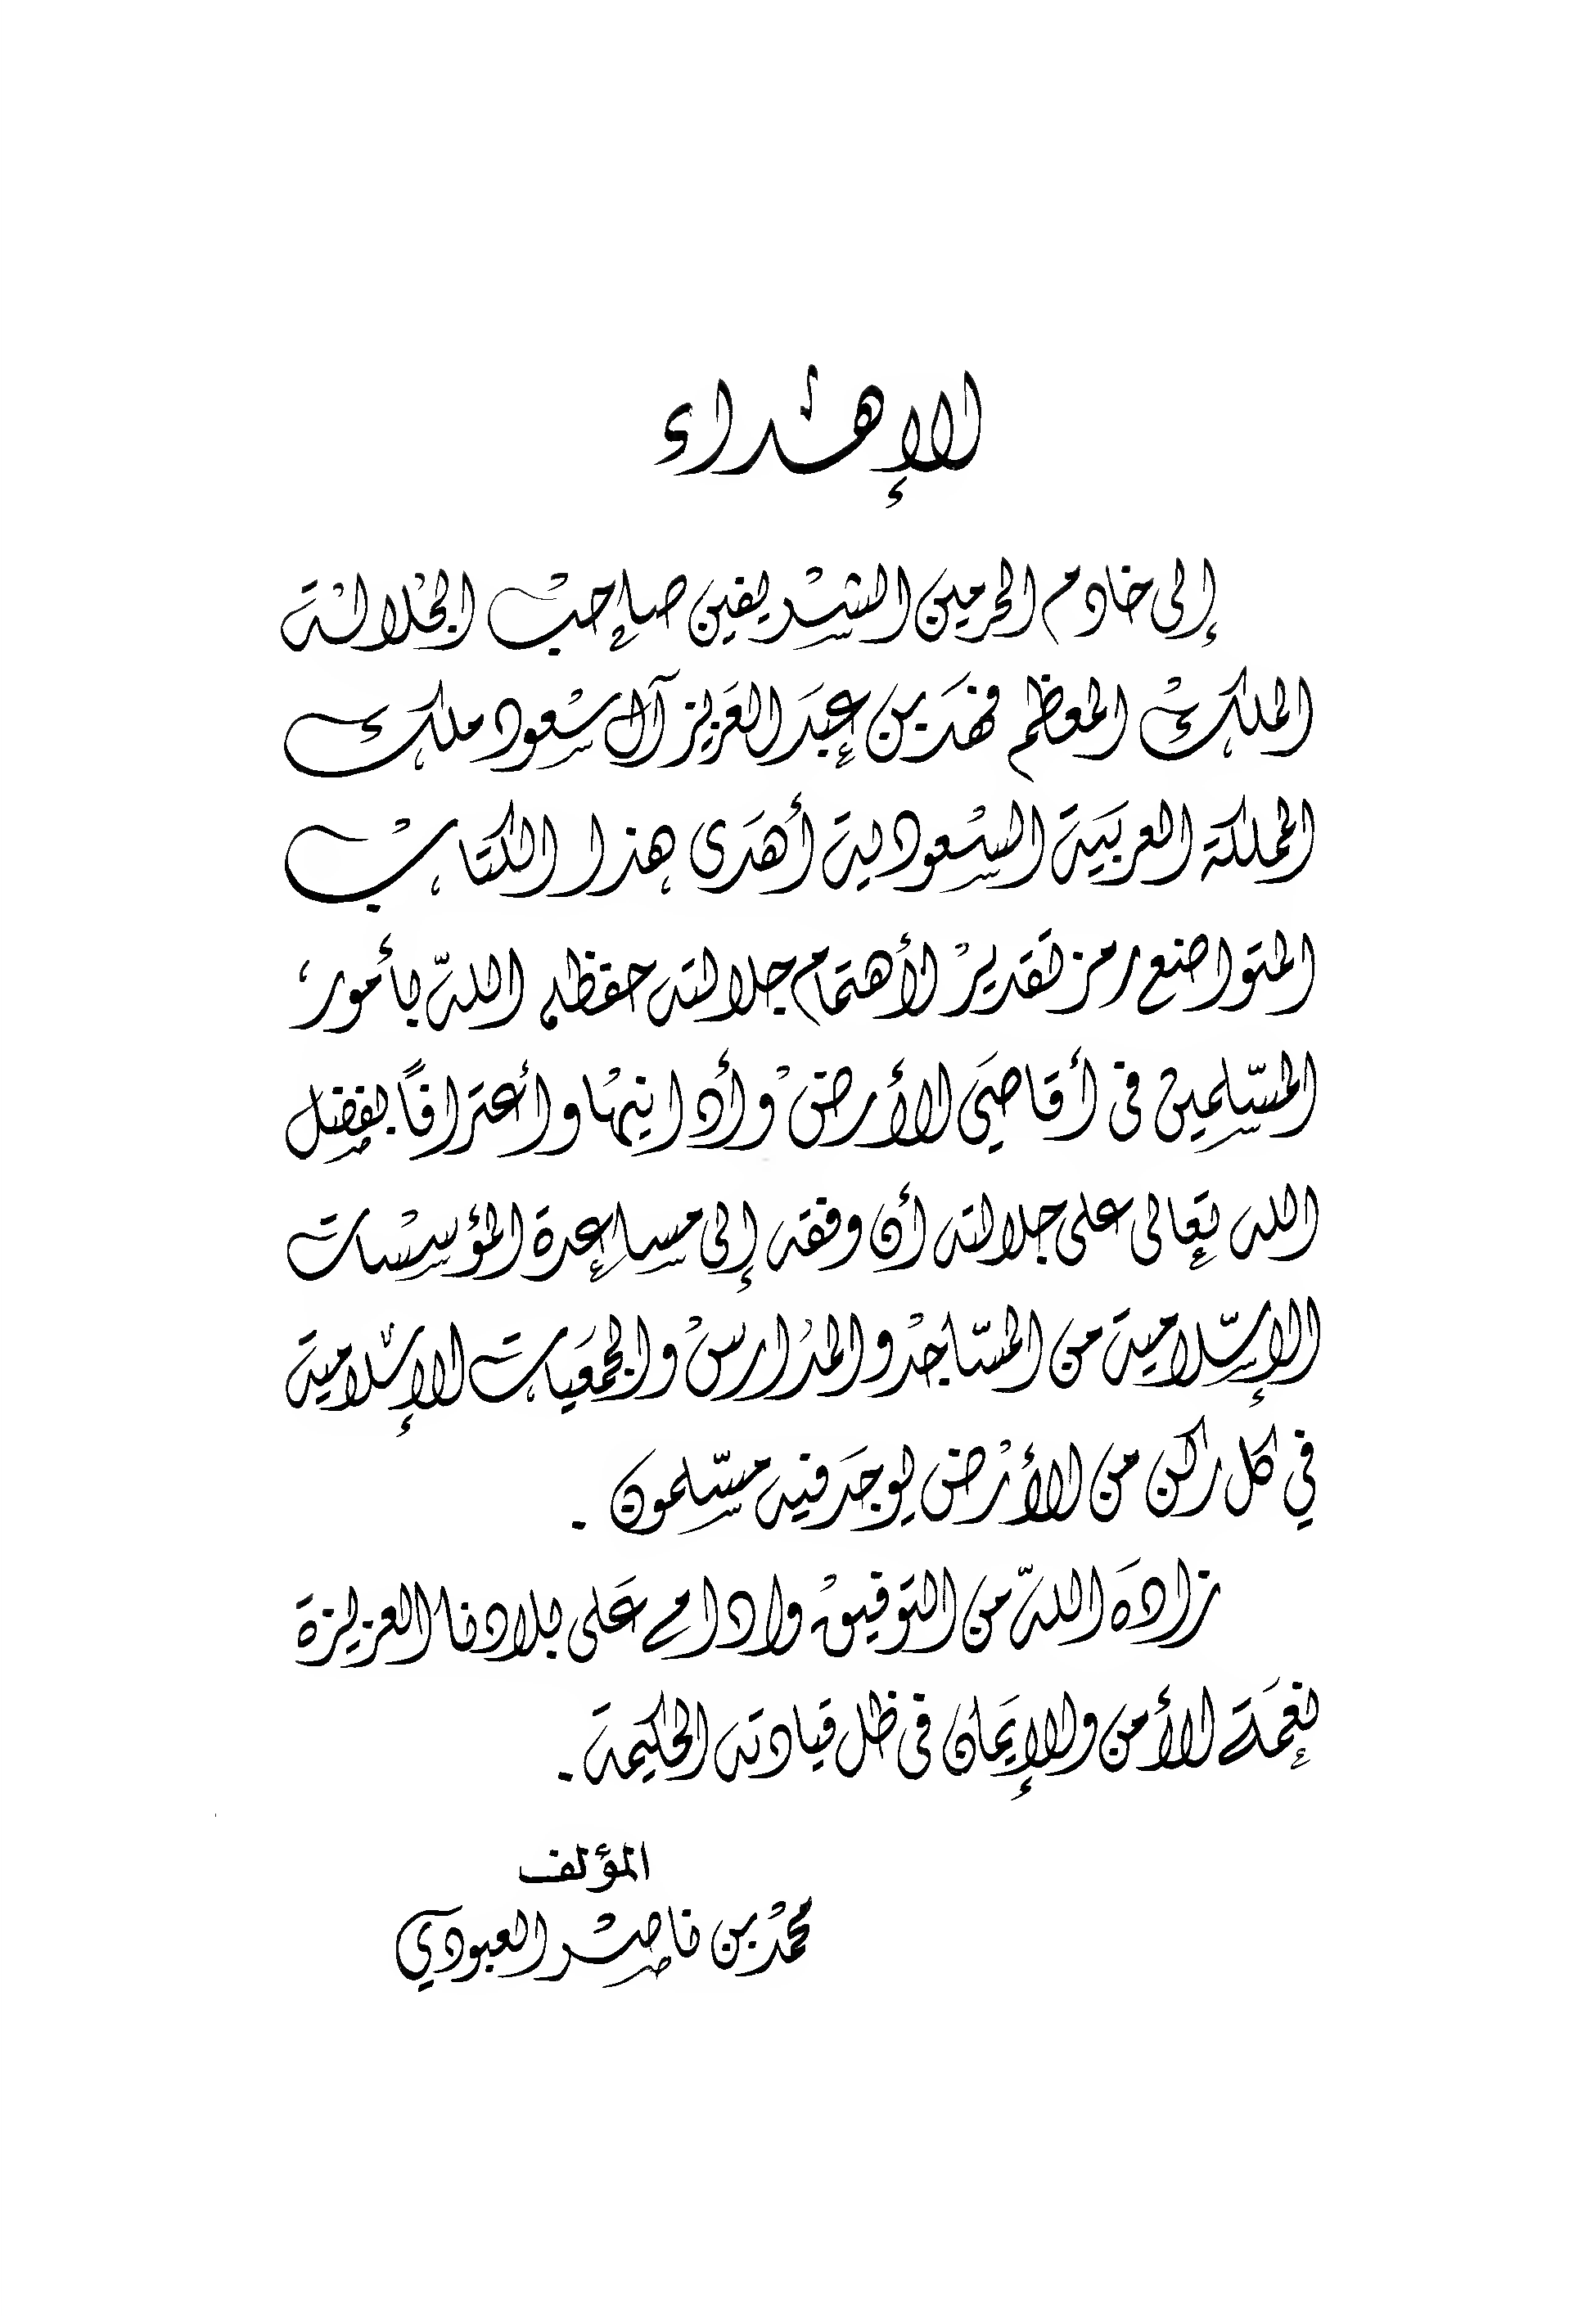 الإهداء
إلى خادم الحرمين الشريفين صاحب الجلالة
الملك المعظم فهد بن عبد العزيز آل سعود ملك
المملكة العربية السعودية أهدى هذا الكتاب
المتواضع رمز تقدير لأهتمام جلالته حفظه الله بأمور
المسلمين فى أقاصي الأرض وأدانيها وأعترافاً بفضل
الله تعالى على جلالته أن وفقه إلى مساعدة المؤسسات
الإسلامية من المساجد والمدارس والجمعيات الإسلامية
في كل ركن من الأرض يوجد فيه مسلمون .
زاده الله من التوفيق وادام على بلادنا العزيزة
نعمة الأمن والإيمان فى ظل قيادته الحكيمة .
المؤلف
محمد بن ناصر العبودي